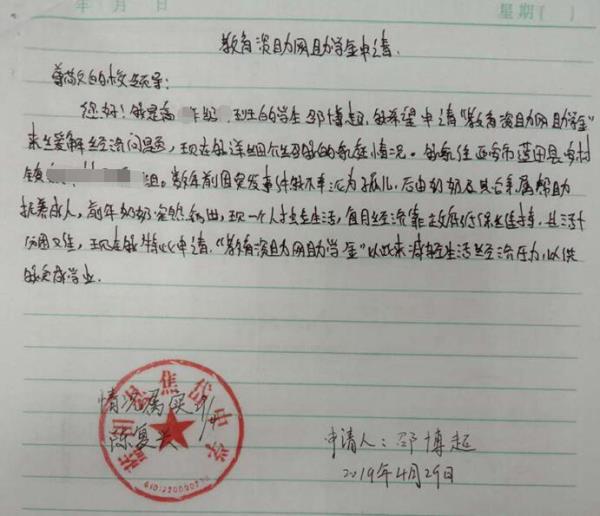 年 月 日 星期( )
教育资助网助学金申请
尊敬的校领导:
您好!我是高 年级 班的学生邵博超,我希望申请“教育资助网助学金”
来缓解经济问题,现在我详细介绍我的家庭情况。我家住西安市蓝田县 村
镇 组。数年前因突发事件我不幸沦为孤儿,后由奶奶及其亲属帮助
扶养成人,前年奶奶 ,现一个人 生活,每月经济靠政府低保 维持,生活十
分困难,现在我特此申请,“教育资助网助学金”以此来减轻生活与经济压力,以供
我完成学业。
情况属实
陈复兴
蓝田县焦岱中学
申请人:邵博超
2019年4月29日